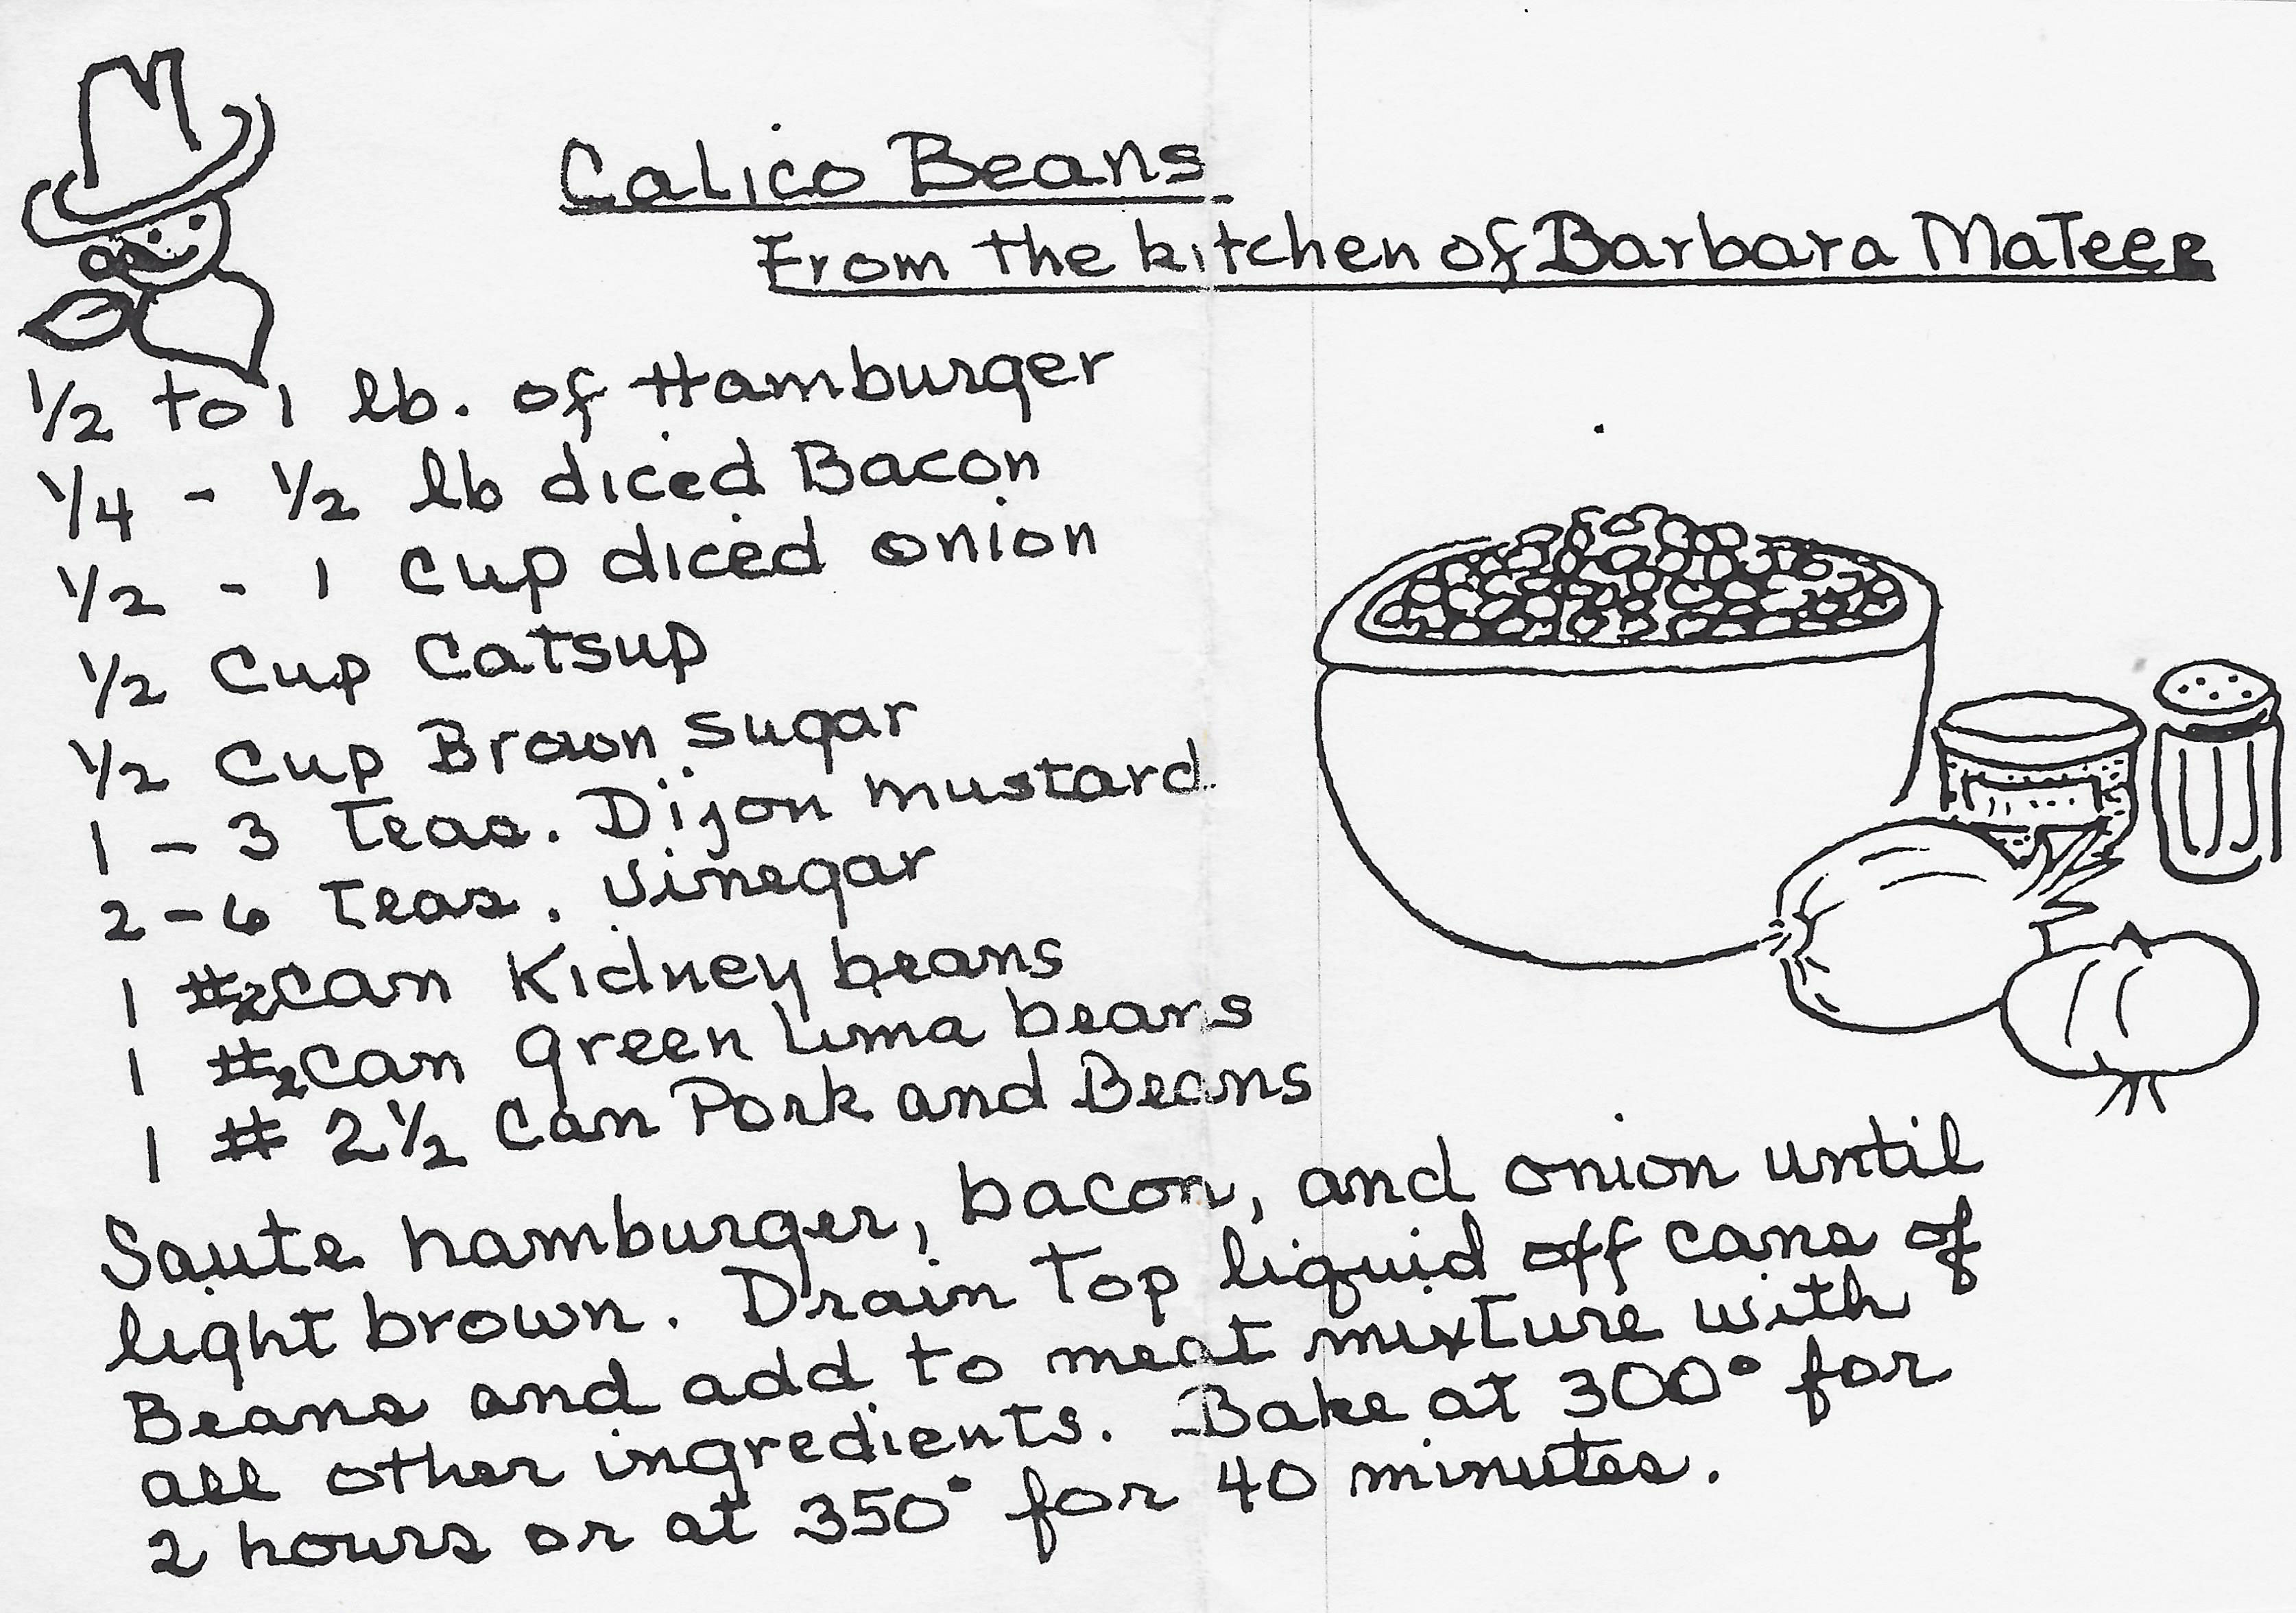 Calico Beans
From the kitchen of Barbara MaTeer
1/2 to 1 lb. of Hamburger
1/4 - 1/2 lb diced Bacon
1/2 - 1 Cup diced onion
1/2 Cup Catsup
1/2 Cup Brown sugar
1 - 3 Teas. Dijon mustard
2 - 6 Teas. Vinegar
1 #2 Can Kidney beans
1 #2 Can green Lima beans
1 # 2 1/2 Can Pork and Beans
Saute hamburger, bacon, and onion until
light brown. Drain Top liquid off cans of
Beans and add to meat mixture with
all other ingredients. Bake at 300° for
2 hours or at 350° for 40 minutes.